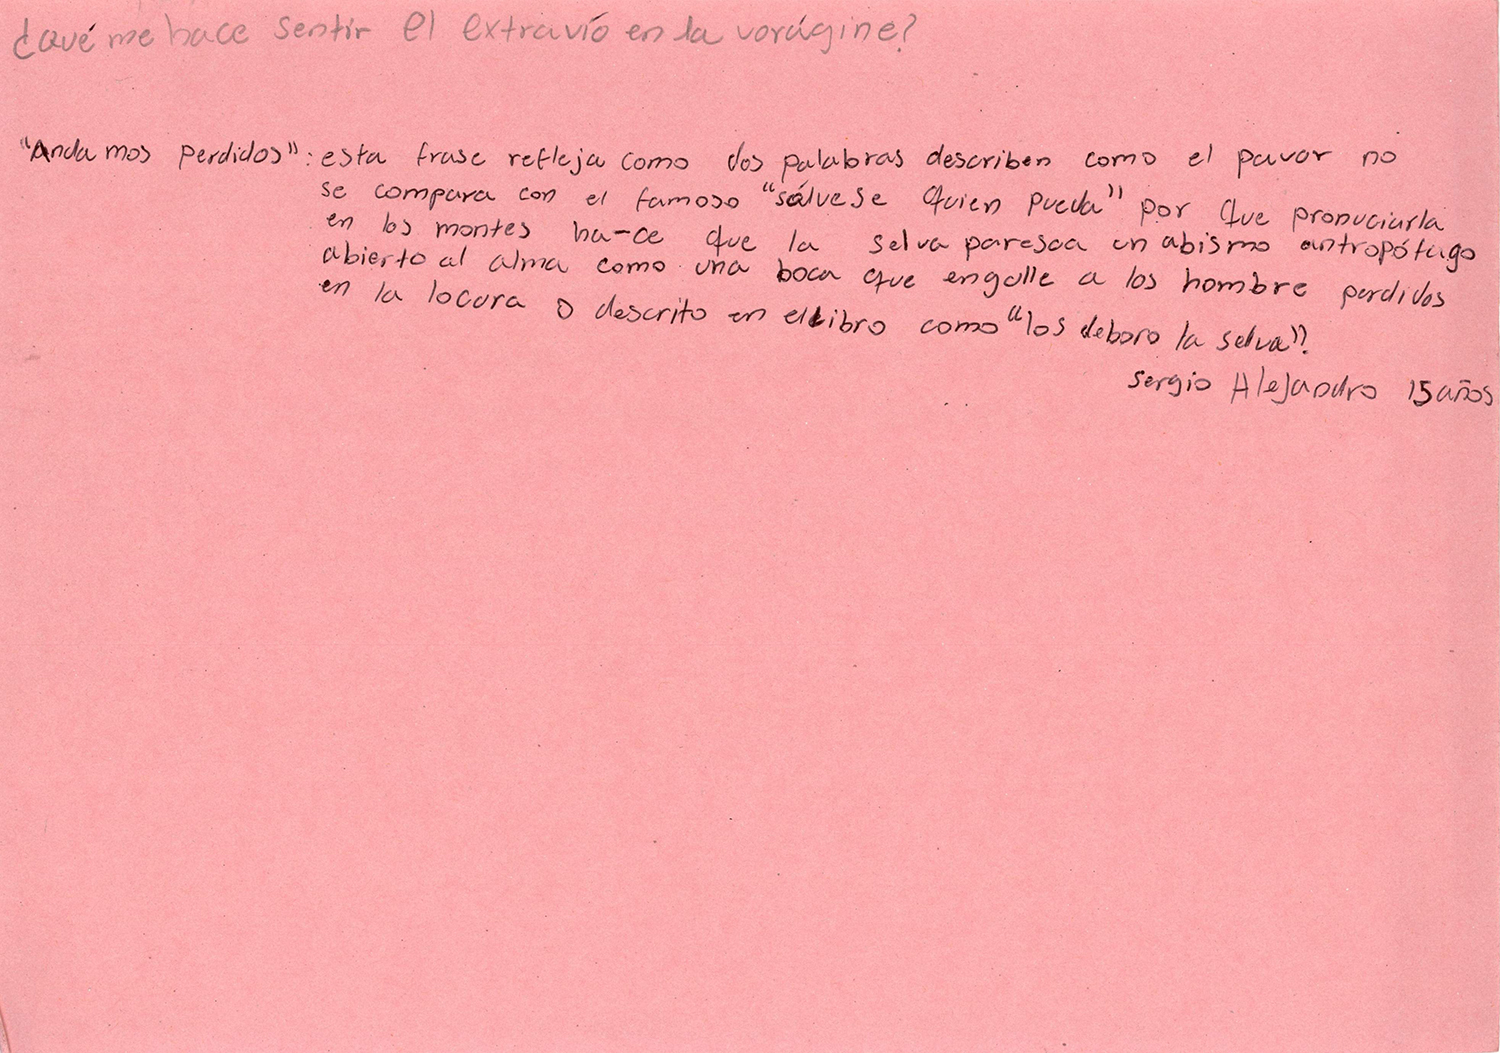 ¿Qué me hace sentir el extravío en la vorágine?
"Andamos perdidos": esta frase refleja como dos palabras describen como el pavor no
se compara con el famoso "sálvese quien pueda" por que pronuciarla
en los montes ha-ce que la selva paresca un abismo antropófago
abierto al alma como una boca que engulle a los hombre perdidos
en la locura o descrito en el libro como "los deboro la selva".
Sergio Alejandro 15 años